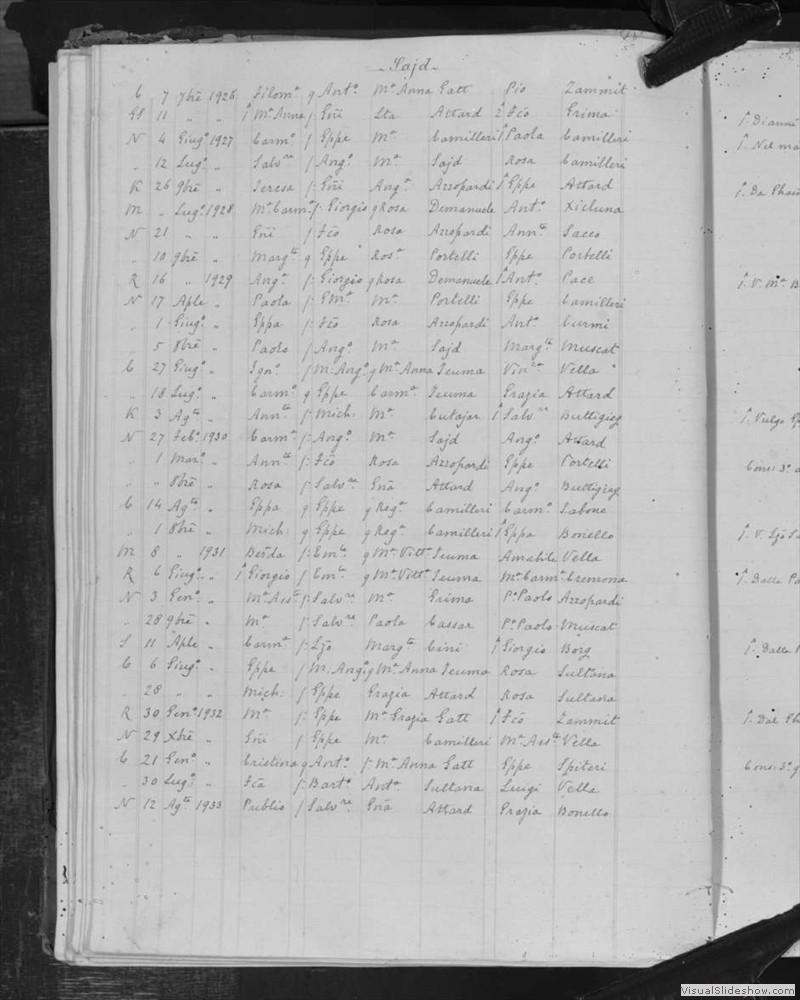 Sajd
C 7 7bre 1926 Filomᵃ q Antᵒ Mᵃ Anna Gatt Pio Zammit
GS 11 " " 1 Mᵃ Anna f: Gñi Lta Attard 2 Fċo Grima
N 4 Giugᵒ 1927 Carmᵒ f Eppe Mᵃ Camilleri 1 Paola Camilleri
" 12 Lugᵒ " Salvʳᵉ f Angᵒ Mᵃ Sajd Rosa Camilleri
K 26 9bre " Teresa f: Gñi Angᵃ Azzopardi 1 Eppe Attard
M " Lugᵒ 1928 Mᵃ Carmᵃ f: Giorgio q Rosa Demanuele Antᵒ Xicluna
N 21 " " Gñi f: Fċo Rosa Azzopardi Annᵗᵃ Sacco
" 10 9bre " Margᵗᵃ q Eppe Rosᵃ Portelli Eppe Portelli
R 16 " 1929 Angᵒ f: Giorgio q Rosa Demanuele 1 Antᵃ Pace
N 17 Aple " Paola f: Emᵃ Mᵃ Portelli Eppe Camilleri
" 1 Giugᵒ " Eppa f: Fċo Rosa Azzopardi Antᵒ Curmi
" 5 8bre " Paolo f Angᵒ Mᵃ Sajd Margᵗᵃ Muscat
C 27 Giugᵒ " Ignᵒ f M: Angᵒ q Mᵃ Anna Teuma Vella
" 18 Lugᵒ " Carmᵒ q Eppe Carmᵃ Teuma Grazia Attard
K 3 Agᵗᵒ " Annᵗᵃ f: Mich: Mᵃ Cutajar 1 Salvʳᵉ Buttigieg
N 27 Febᵒ 1930 Carmᵒ f: Angᵒ Mᵃ Sajd Angᵃ Attard
" 1 Marᵒ " Annᵗᵃ f: Fċo Rosa Azzopardi Eppe Portelli
" " 8bre " Rosa f: Salvʳᵉ Gña Attard Angᵒ Buttigieg
C 14 Agᵗᵒ " Eppa q Eppe q Regᵃ Camilleri Carmᵒ Sabone
" 1 8bre " Mich: q Eppe q Regᵃ Camilleri 1 Eppa Bonello
M 8 " 1931 f: Emᵗᵉ q Mᵃ Vittᵃ Teuma Amabile Vella
R 6 Giugᵒ " 1 Giorgio f: Emᵗᵉ q Mᵃ Vittᵃ Teuma Mᵃ Carmᵃ Cremona
N 3 Genᵒ " Mᵃ Assᵗᵃ f: Salvʳᵉ Mᵃ Grima Pᵒ Paolo Azzopardi
" 28 9bre " Mᵃ f: Salvʳᵉ Paola Cassar Pᵒ Paolo Muscat
S 11 Aple " Carmᵃ f: Ljo Margᵗᵃ Cini 1 Giorgio Borg
C 6 Giugᵒ " Eppe f M: Angᵒ q Mᵃ Anna Teuma Rosa Sultana
" 28 " " Mich: f Eppe Grazia Attard Rosa Sultana
R 30 Genᵒ 1932 Mᵃ f: Eppe Mᵃ Grazia Gatt 1 Fċo Zammit
N 29 Xbre " Gñi f: Eppe Mᵃ Camilleri Mᵃ Assᵗᵃ Vella
C 21 Genᵒ " Cristina q Antᵒ f: Mᵃ Anna Gatt Eppe Spiteri
" 30 Lugᵒ " Fċa f: Bartᵒ Antᵃ Sultana Luigi Vella
N 12 Agᵗᵒ 1933 Publio f Salvʳᵉ Gña Attard Grazia Bonello
1. Dianni
1. Nel
1. Da
1. V. Mᵃ B
1. Vulgo
Cons: 3ᵒ
1. V. Ljo
1. Dalla
1. Dalla
1. Dal
Cons: 3ᵒ
VisualSlideshow.com